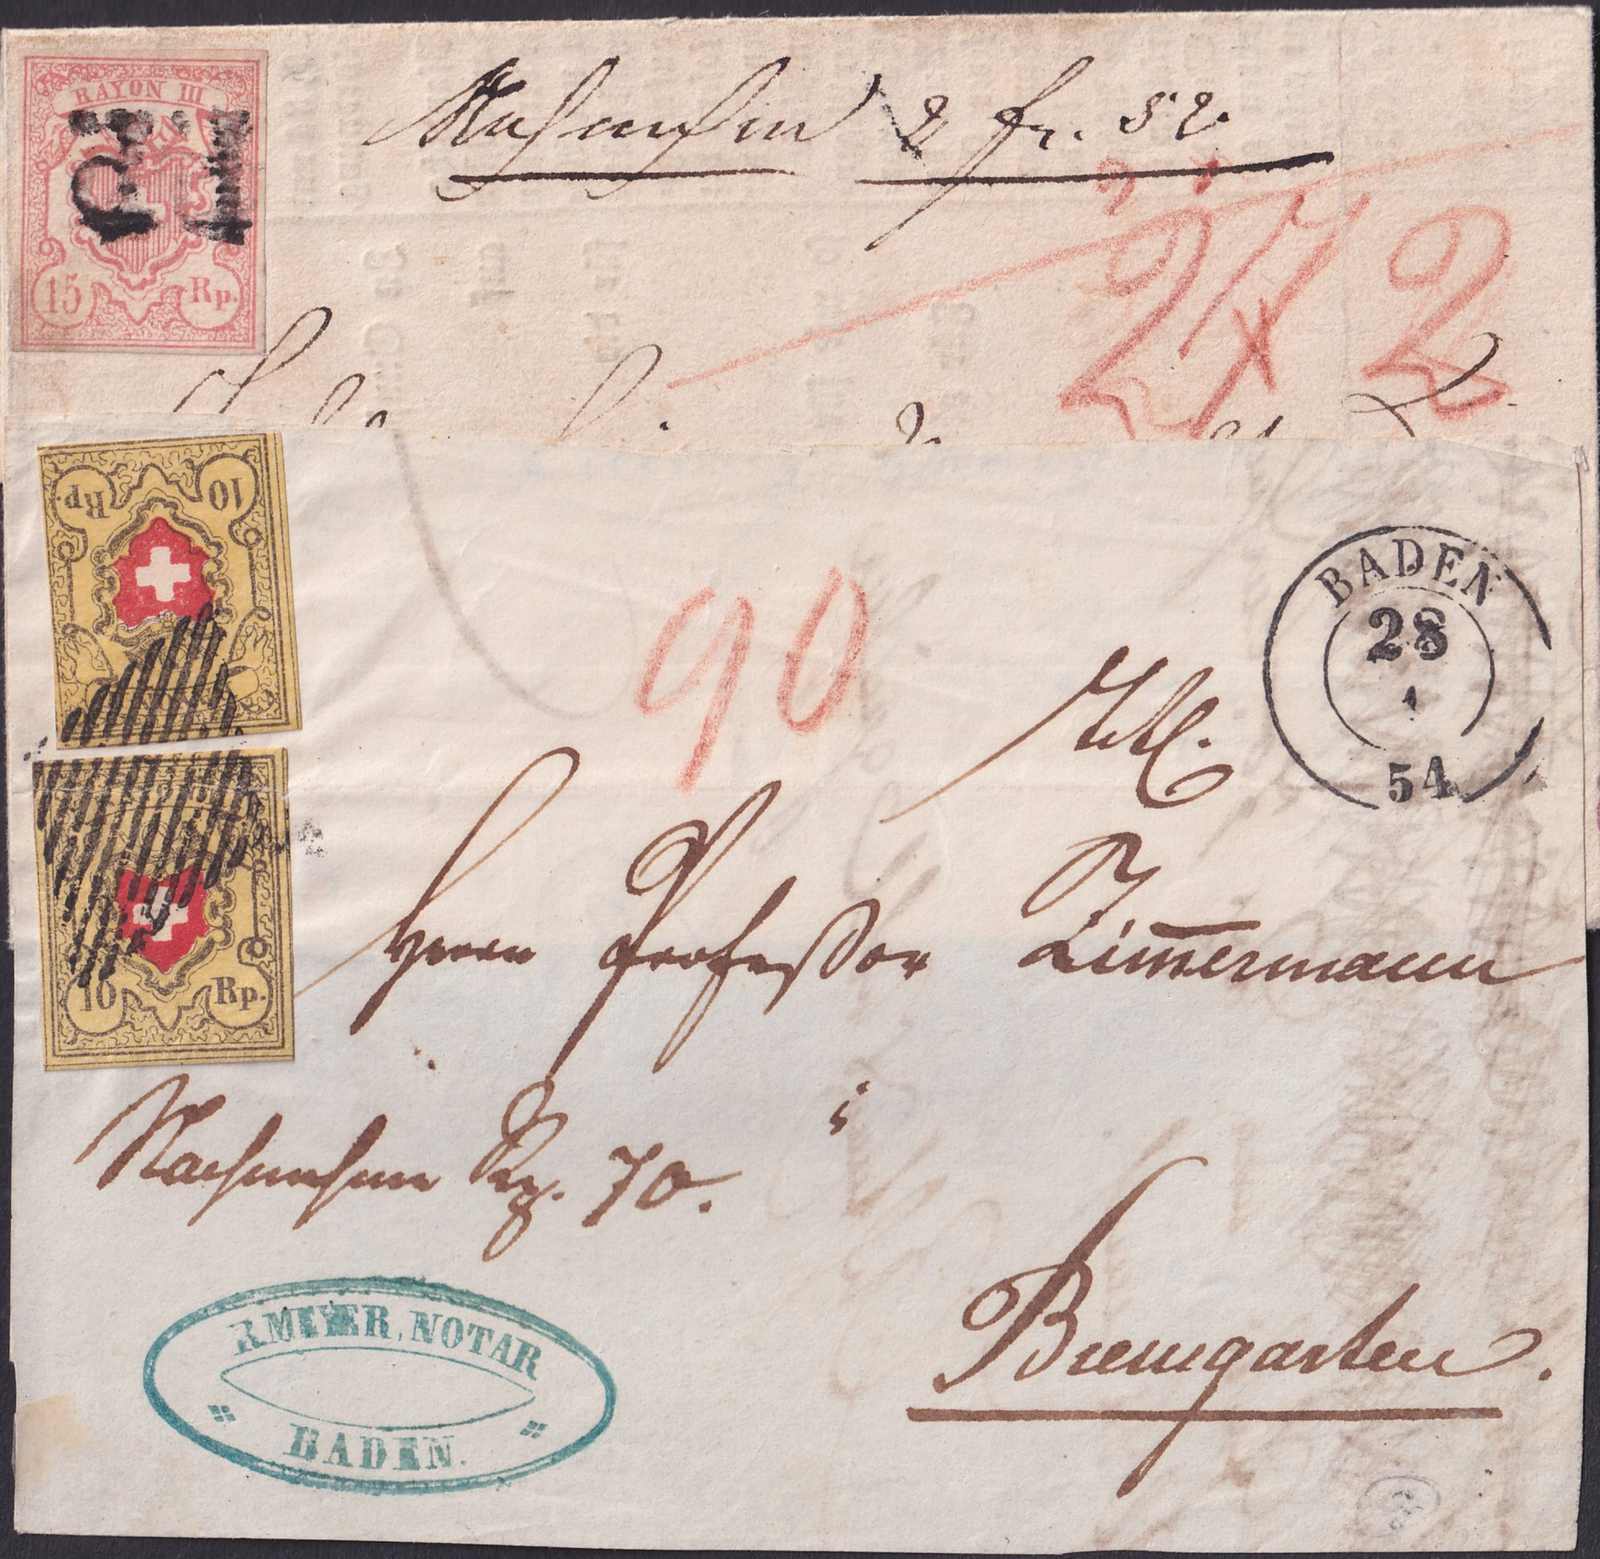 RAYON III
15 Rp.
Nachnahme 2 fr. 52
2
90
10 Rp.
10 Rp.
BADEN
28
1
54
Herrn Professor Zimmermann
Nachnahme Rp. 70.
Bremgarten.
R MEYER, NOTAR
BADEN.